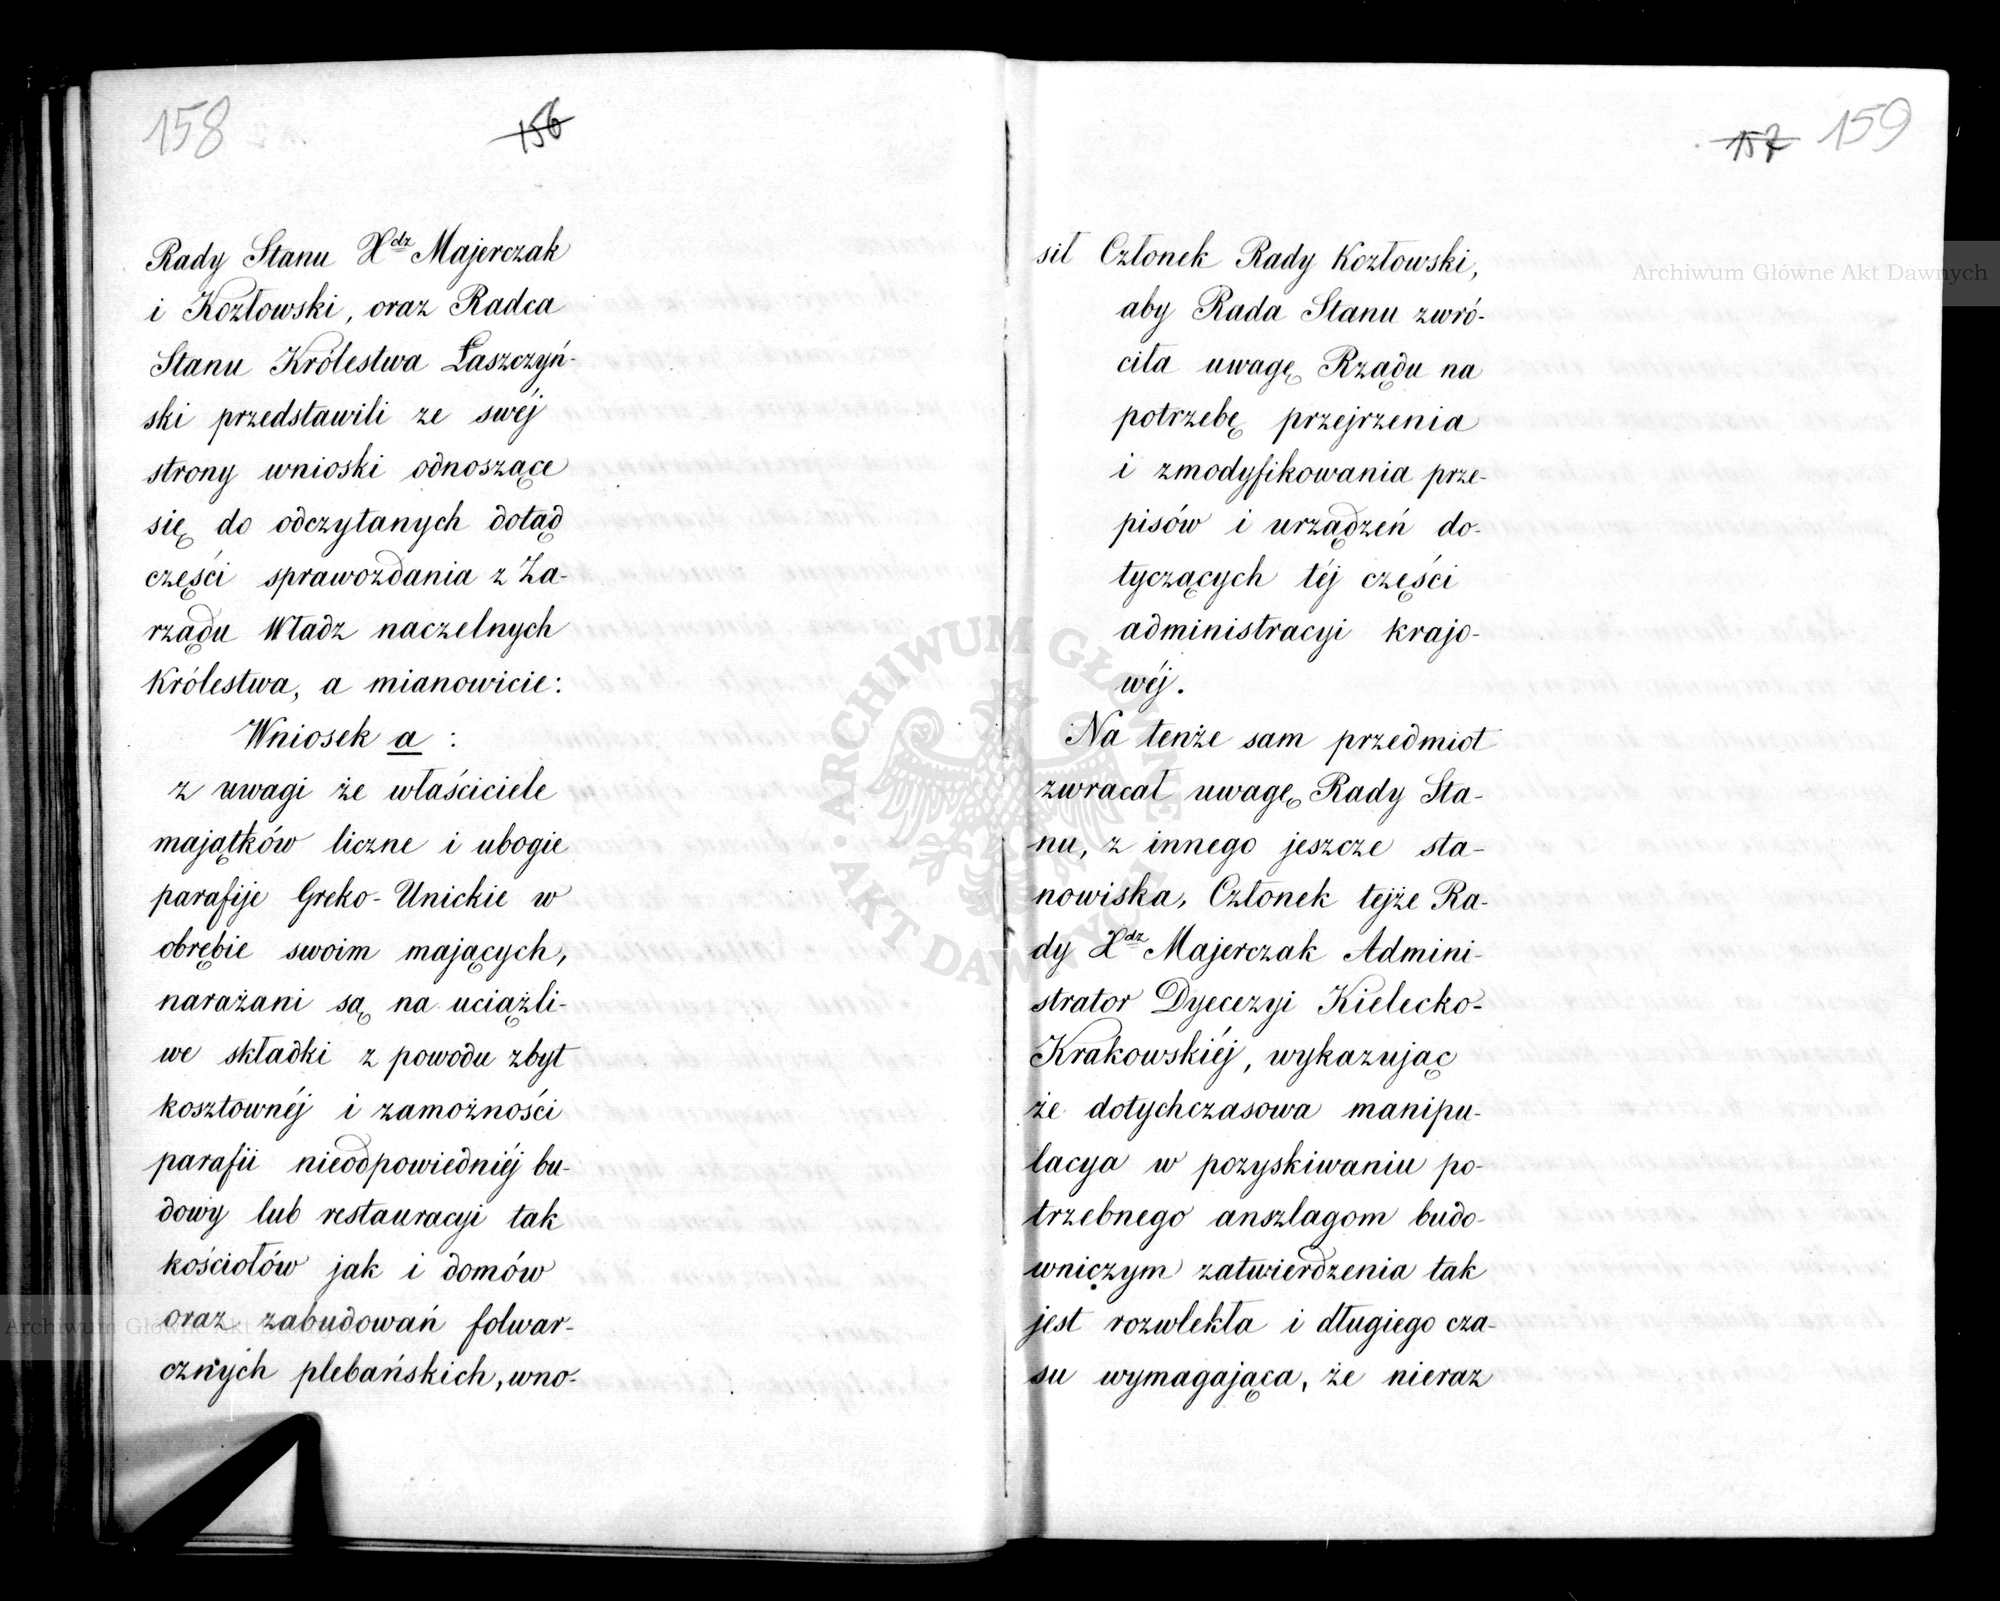 158
156
Rady Stanu Xdz Majerczak
i Kozłowski, oraz Radca
Stanu Królestwa Łaszczyń-
ski przedstawili ze swéj
strony wnioski odnoszące
się do odczytanych dotąd
części sprawozdania z Za-
rządu Władz naczelnych
Królestwa, a mianowicie:
Wniosek a :
z uwagi że właściciele
majątków liczne i ubogie
parafije Greko-Unickie w
obrębie swoim mających,
narażani są na uciążli-
we składki z powodu zbyt
kosztownéj i zamożności
parafii nieodpowiedniéj bu-
dowy lub restauracyi tak
kościołów jak i domów
oraz zabudowań folwar-
cznych plebańskich, wno-
157
159
sił Członek Rady Kozłowski,
aby Rada Stanu zwró-
ciła uwagę Rządu na
potrzebę przejrzenia
i zmodyfikowania prze-
pisów i urządzeń do-
tyczących téj części
administracyi krajo-
wéj.
Na tenże sam przedmiot
zwracał uwagę Rady Sta-
nu, z innego jeszcze sta-
nowiska, Członek tejże Ra-
dy Xdz Majerczak Admini-
strator Dyecezyi Kielecko-
Krakowskiéj, wykazując
że dotychczasowa manipu-
lacya w pozyskiwaniu po-
trzebnego anszlagom budo-
wniczym zatwierdzenia tak
jest rozwlekła i długiego cza-
su wymagająca, że nieraz
Archiwum Główne Akt Dawnych
Archiwum Główne Akt Dawnych
ARCHIWUM GŁÓWNE AKT DAWNYCH